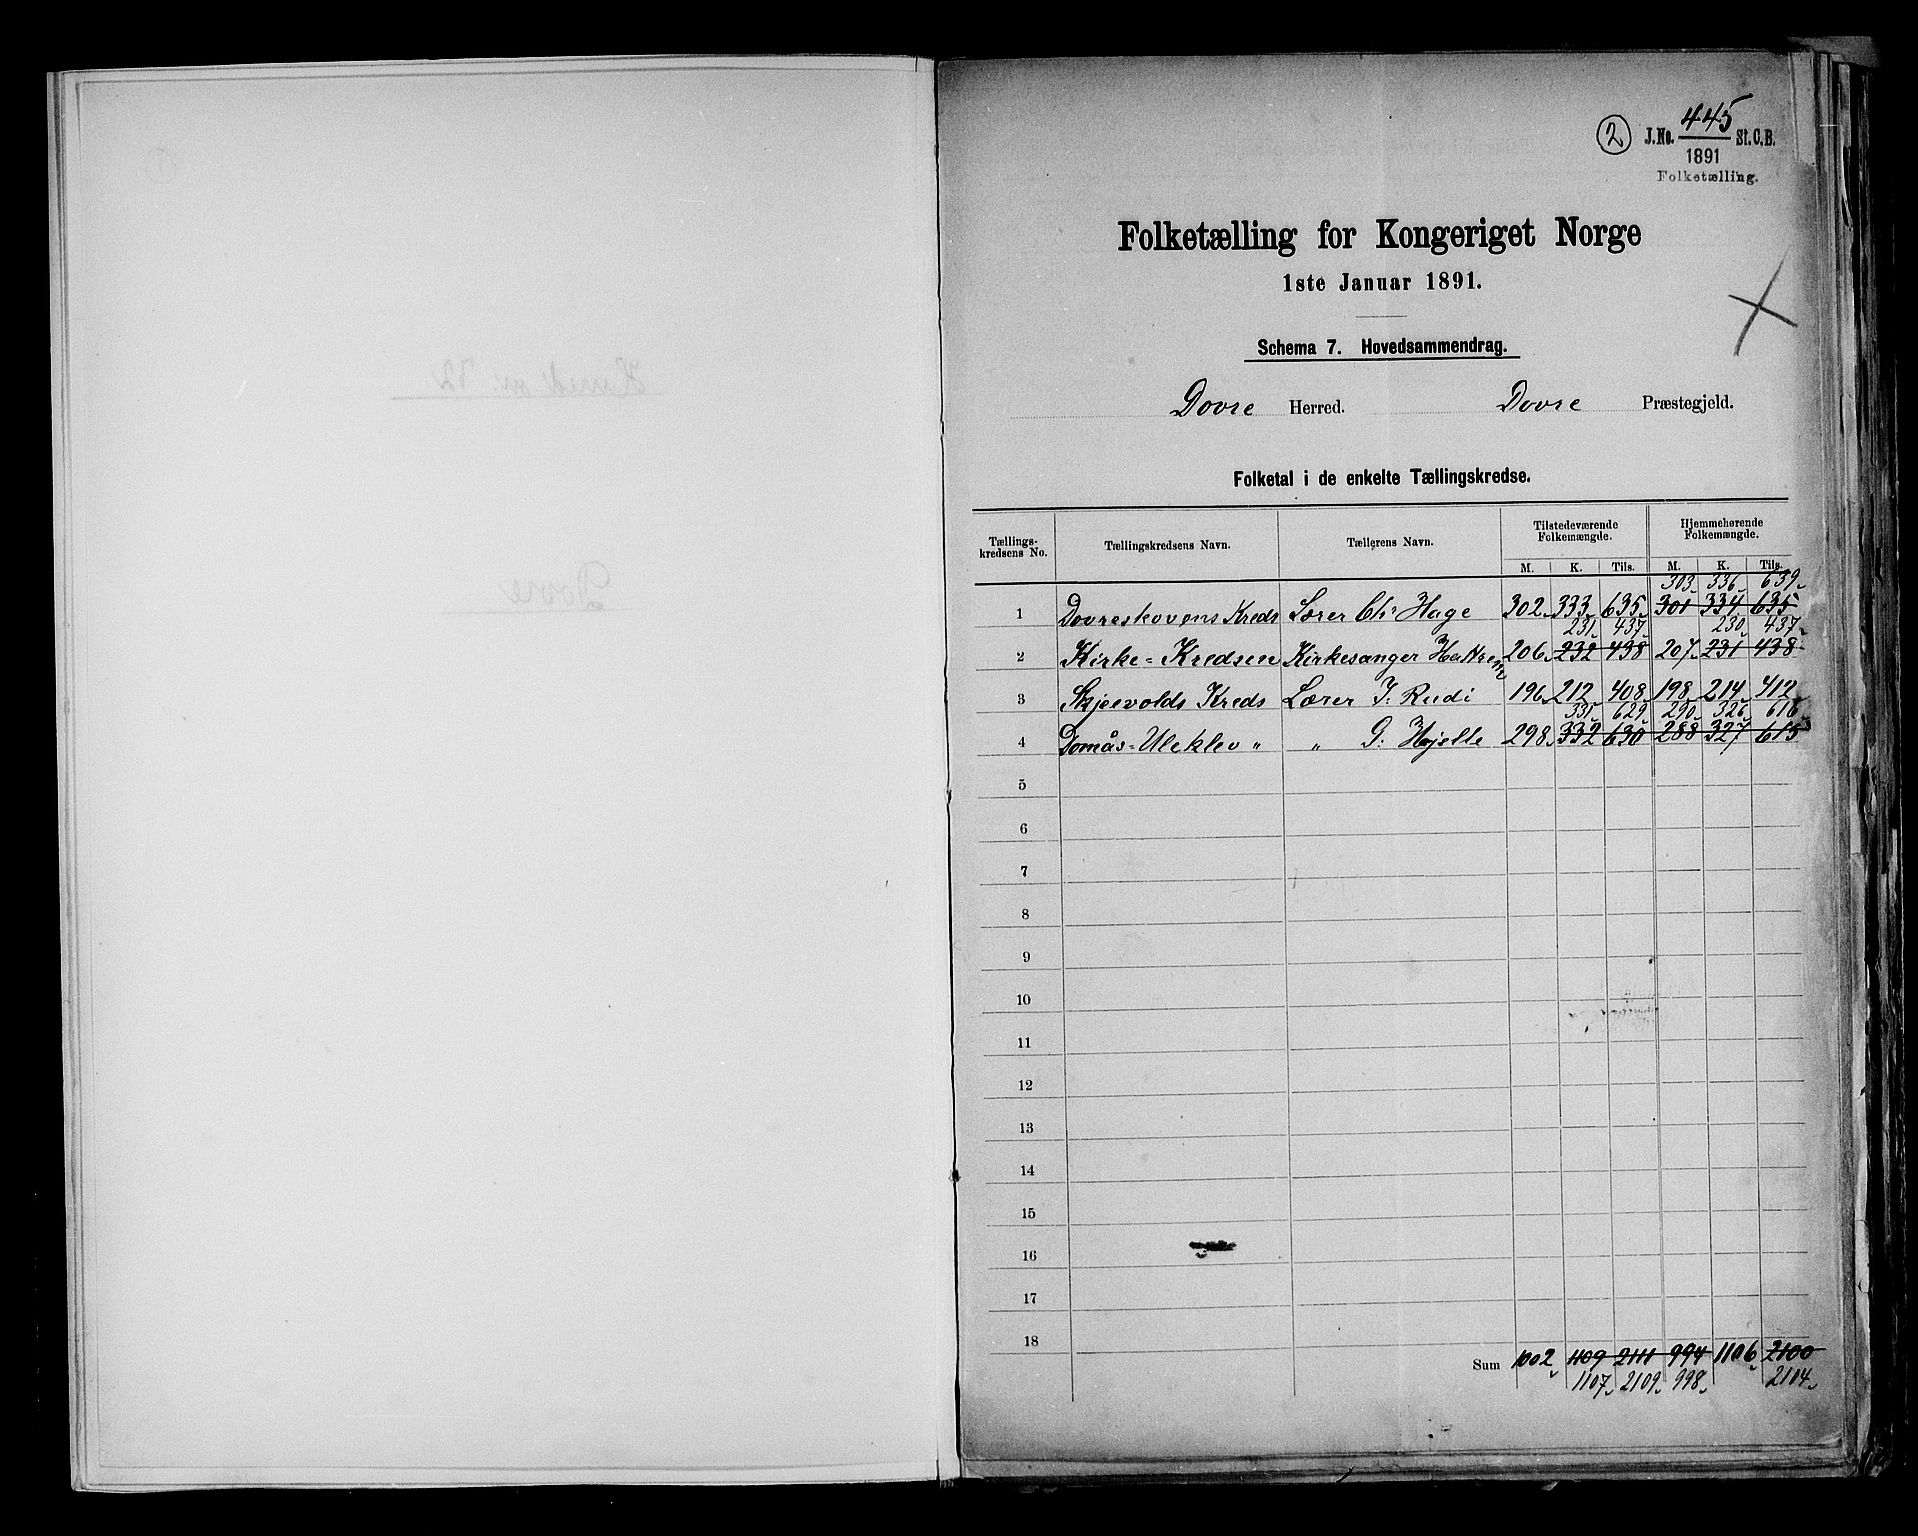 2 J.No. 445 St.C.B.
1891
Folketælling.
Folketælling for Kongeriget Norge
1ste Januar 1891.
Schema 7. Hovedsammendrag.
Dovre Herred. Dovre Præstegjeld.
Folketal i de enkelte Tællingskredse.
Tællings-kredsens No. Tællingskredsens Navn. Tællerens Navn. Tilstedeværende Folkemængde. Hjemmehørende Folkemængde.
M. K. Tils. M. K. Tils.
303 336 639
1 Dovreskovens Kreds Lærer Chr Hage 302 333 635 301 334 635
231 437 230 437
2 Kirke-Kredsen Kirkesanger Hattrem 206 232 438 207 231 438
3 Skjevolds Kreds Lærer I: Rudi 196 212 408 198 214 412
331 629 290 326 616
4 Domås-Uleklev " " G: Hjelle 298 332 630 288 327 615
5
6
7
8
9
10
11
12
13
14
15
16
17
18
Sum 1002 1109 2111 994 1106 2100
1107 2109 998 2104